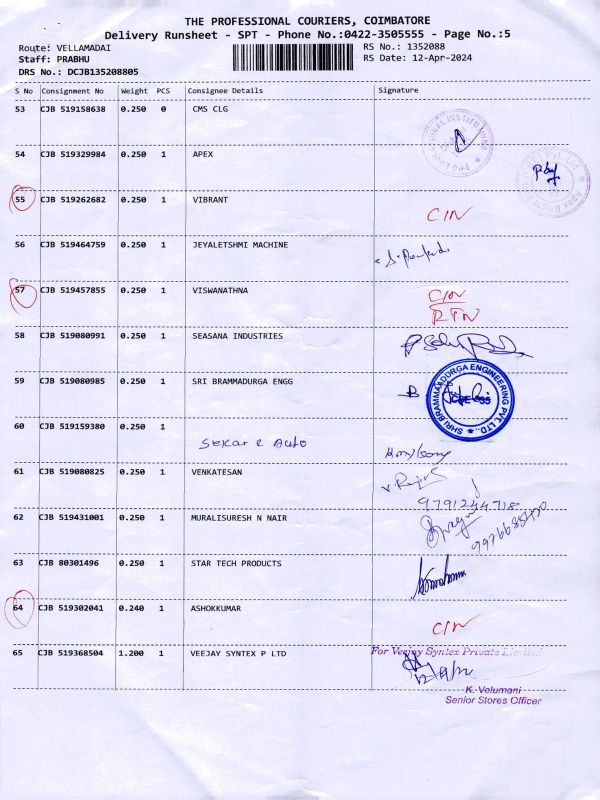 THE PROFESSIONAL COURIERS, COIMBATORE
Delivery Runsheet - SPT - Phone No.:0422-3505555 - Page No.:5
Route: VELLAMADAI RS No.: 1352088
Staff: PRABHU RS Date: 12-Apr-2024
DRS No.: DCJB135208805
S No Consignment No Weight PCS Consignee Details Signature
53 CJB 519158638 0.250 0 CMS CLG
54 CJB 519329984 0.250 1 APEX
55 CJB 519262682 0.250 1 VIBRANT CIN
56 CJB 519464759 0.250 1 JEYALETSHMI MACHINE
57 CJB 519457855 0.250 1 VISWANATHNA CIN
RTN
58 CJB 519080991 0.250 1 SEASANA INDUSTRIES
59 CJB 519080985 0.250 1 SRI BRAMMADURGA ENGG
SHRI BRAMMAADURGA ENGINEERING PVT. LTD.
60 CJB 519159380 0.250 1
Sekar R Auto
61 CJB 519080825 0.250 1 VENKATESAN
9791244718
62 CJB 519431001 0.250 1 MURALISURESH N NAIR
63 CJB 80301496 0.250 1 STAR TECH PRODUCTS
64 CJB 519302041 0.240 1 ASHOKKUMAR CIN
65 CJB 519368504 1.200 1 VEEJAY SYNTEX P LTD For Veejay Syntex Private Limited
K. Velumani
Senior Stores Officer